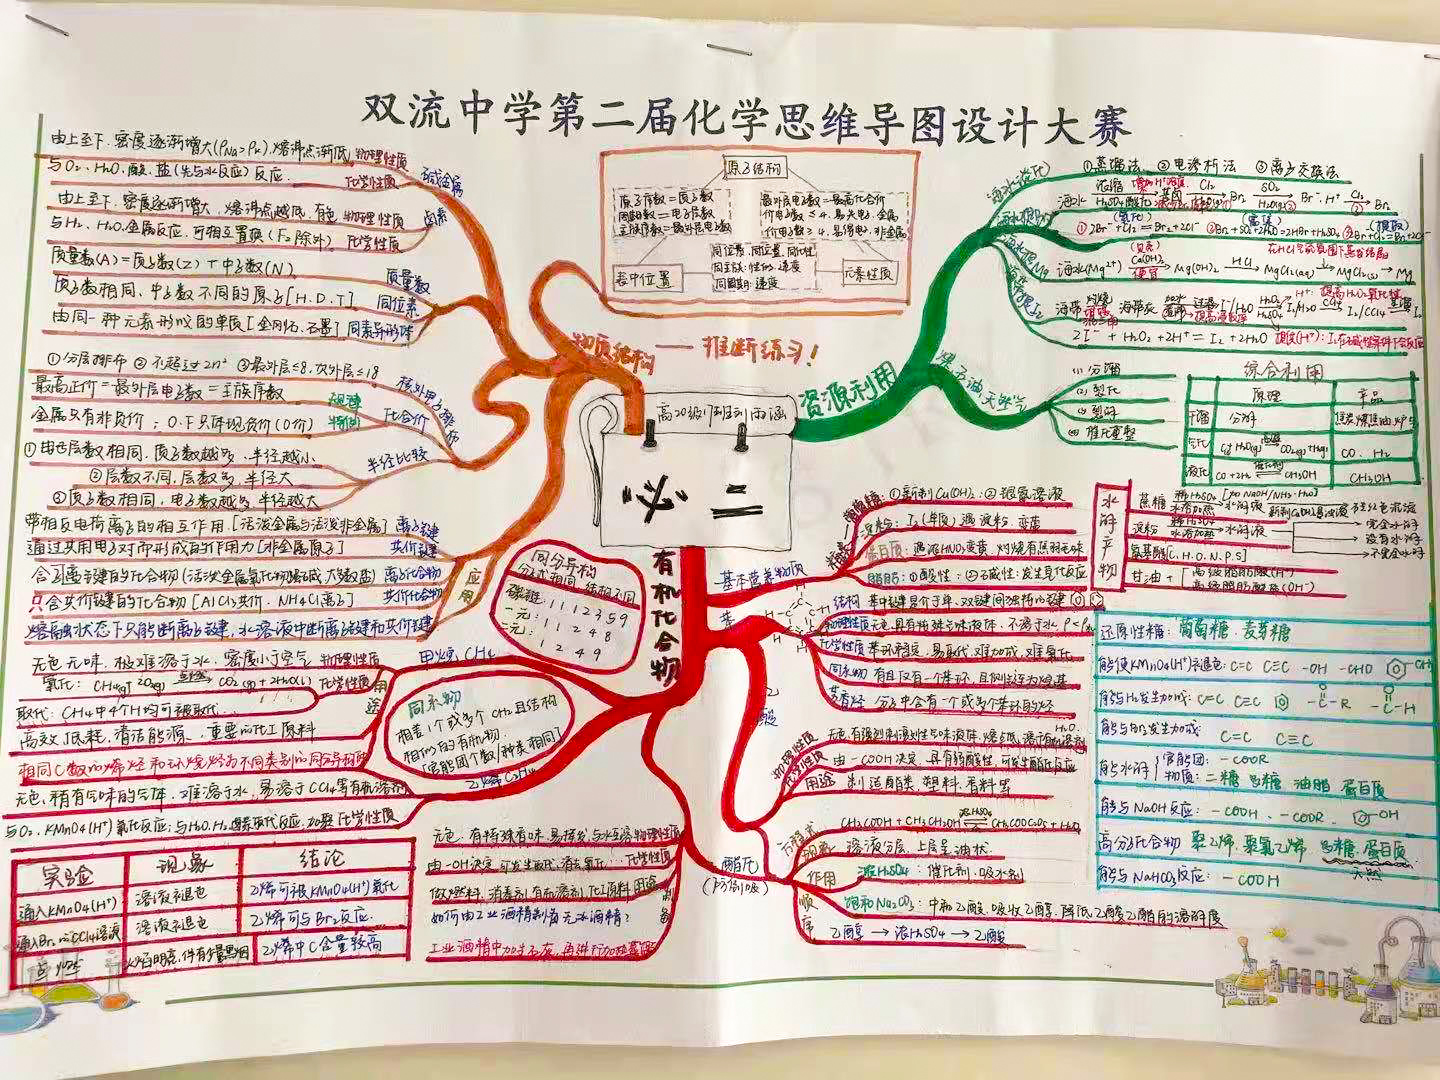 双流中学第二届化学思维导图设计大赛
由上至下,密度逐渐增大(ρNa>ρK),熔沸点渐低 物理性质
与O₂、H₂O、酸、盐(先与水反应)反应. 化学性质
碱金属
由上至下,密度逐渐增大,熔沸点越低,有色 物理性质
与H₂、H₂O、金属反应,可相互置换(F₂除外) 化学性质
卤素
质量数(A)=质子数(Z)+中子数(N) 质量数
质子数相同,中子数不同的原子[H、D、T] 同位素
由同一种元素形成的单质[金刚石、石墨] 同素异形体
①分层排布 ②不超过2n² ③最外层≤8,次外层≤18
核外电子排布
最高正价=最外层电子数=主族序数 规律
金属只有非负价;O、F只有负价(0价) 特例
化合价
①电子层数相同,质子数越多,半径越小
②层数不同,层数多,半径大
③质子数相同,电子数越多,半径越大
半径比较
带相反电荷离子的相互作用[活泼金属与活泼非金属] 离子键
通过共用电子对而形成的作用力[非金属原子] 共价键
含离子键的化合物(活泼金属氧化物、强碱、大多数盐) 离子化合物
只含共价键的化合物[AlCl₃共价,NH₄Cl离子] 共价化合物
熔融状态下只能断离子键,水溶液中断离子键和共价键
应用
原子结构
原子序数=质子数
周期数=电子层数
主族序数=最外层电子数
最外层电子数=最高化合价
价电子数≤4,易失电子,金属
价电子数≥4,易得电子,非金属
表中位置
同位置
同主族:性质,递变
同周期:递变
元素性质
物质结构——推断练习!
必二
资源利用
海水淡化
①蒸馏法 ②电渗析法 ③离子交换法
海水提Br₂
海水提Mg
海水(Mg²⁺) Ca(OH)₂ Mg(OH)₂ HCl MgCl₂(aq) MgCl₂(s) Mg
海带提I₂
海带 灼烧 海带灰
2I⁻+H₂O₂+2H⁺=I₂+2H₂O
煤、石油、天然气
(1)分馏
(2)裂化
(3)裂解
(4)催化重整
综合利用
原理 产品
干馏 分解
气化 CO、H₂
液化 CO+2H₂ CH₃OH CH₃OH
有机化合物
同分异构
分子式相同,结构不同
碳链:1 1 1 2 3 5 9
一元:1 1 2 4 8
二元:1 2 4 9
甲烷 CH₄
无色无味,极难溶于水,密度小于空气 物理性质
氧化:CH₄(g)+2O₂(g) 点燃 CO₂(g)+2H₂O(l) 化学性质
取代:CH₄中4个H均可被取代
高效,低耗,清洁能源,重要的化工原料
用途
相同C数的烯烃和环烷烃为不同类别的同分异构体
同系物
相差1个或多个CH₂且结构
相似的有机物
(官能团个数/种类相同)
乙烯 C₂H₄
无色,稍有气味的气体,难溶于水,易溶于CCl₄等有机溶剂
与O₂、KMnO₄(H⁺)氧化反应;与H₂O、H₂、卤素取代反应,加聚 化学性质
实验 现象 结论
通入KMnO₄(H⁺) 溶液褪色 乙烯可被KMnO₄(H⁺)氧化
通入Br₂的CCl₄溶液 溶液褪色 乙烯可与Br₂反应
点燃 火焰明亮,伴有黑烟 乙烯中C含量较高
无色,有特殊香味,易挥发,与水互溶 物理性质
由-OH决定,可发生取代,消去,氧化 化学性质
做燃料,消毒剂,有机溶剂,化工原料 用途
如何由工业酒精制备无水酒精?
制备
工业酒精中加生石灰,再进行加热蒸馏
基本营养物质
糖类
葡萄糖:①新制Cu(OH)₂;②银氨溶液
淀粉:I₂(单质)遇淀粉,变蓝
蛋白质:遇浓HNO₃变黄,灼烧有焦羽毛味
脂肪:①酸性:②碱性:发生皂化反应
苯
结构 苯中键是介于单、双键间独特的键
物理性质 无色,具有特殊气味液体,不溶于水,ρ<ρ水
化学性质 苯环稳定,易取代,难加成,难氧化
同系物 有且仅有一个苯环,且侧链为烷基
芳香烃 分子中含有一个或多个苯环的烃
乙酸
物理性质 无色,有强烈刺激性气味液体,熔点低,溶于有机溶剂
化学性质 由-COOH决定,具有弱酸性,可发生酯化反应
用途 制造酯类,塑料,香料等
酯化
(可防倒吸)
方程式 CH₃COOH+CH₃CH₂OH 浓H₂SO₄
现象 溶液分层,上层呈油状
作用 浓H₂SO₄:催化剂、吸水剂
饱和Na₂CO₃:中和乙酸,吸收乙醇,降低乙酸乙酯的溶解度
顺序 乙醇→浓H₂SO₄→乙酸
水解产物
蔗糖
淀粉
氨基酸[C.H.O.N.P.S]
完全水解
没有水解
不完全水解
甘油+ 高级脂肪酸(H⁺)
高级脂肪酸盐(OH⁻)
还原性糖:葡萄糖,麦芽糖
能使KMnO₄(H⁺)褪色:C=C C≡C -OH -CHO
能与H₂发生加成:C=C C≡C
能与Br₂发生加成:
C=C C≡C
能水解 官能团:-COOR
物质:二糖 多糖 油脂 蛋白质
能与NaOH反应:-COOH、-COOR、
高分子化合物 聚乙烯,聚氯乙烯,多糖,蛋白质
天然
能与NaHCO₃反应:-COOH